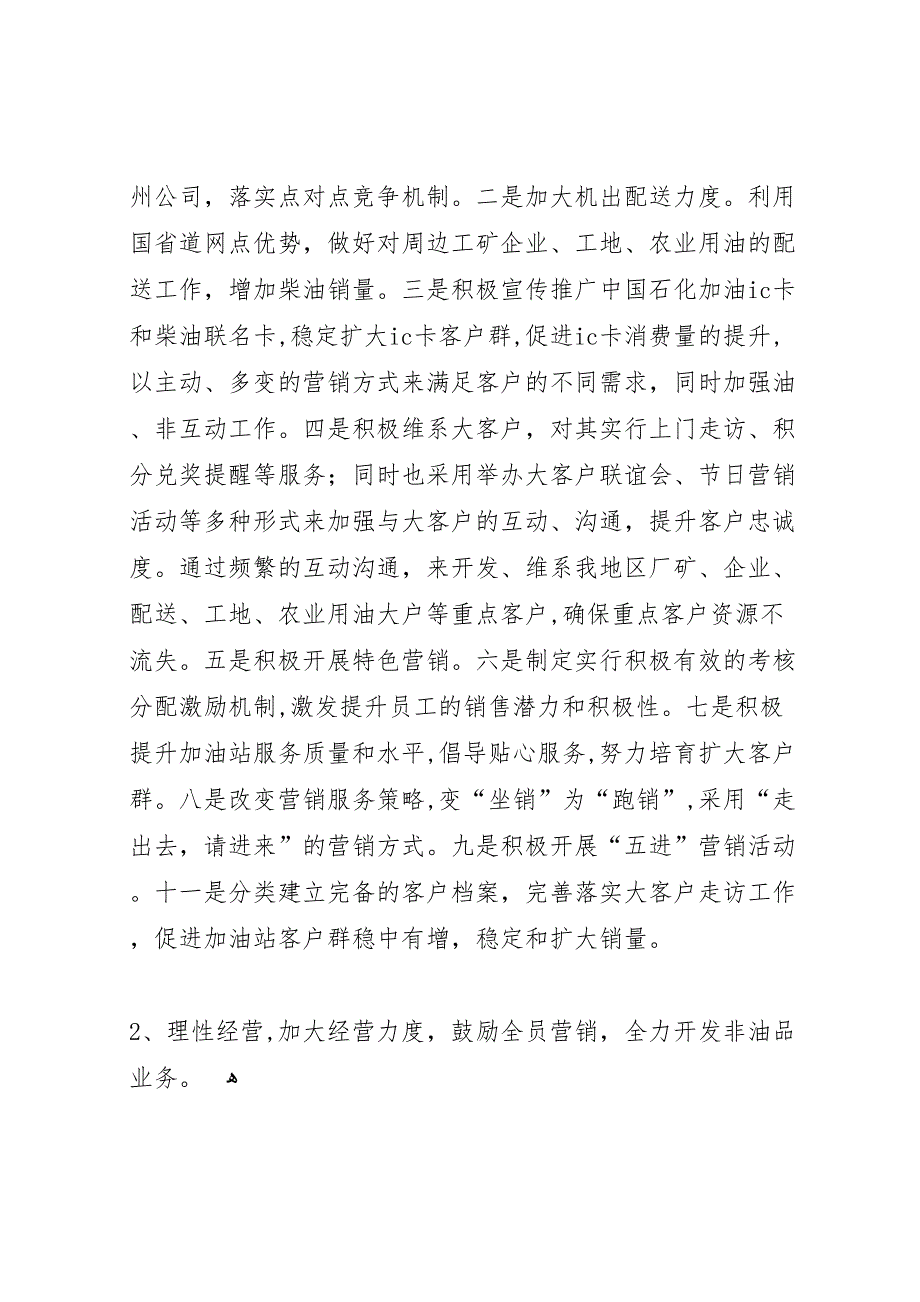 州公司，落实点对点竞争机制。二是加大机出配送力度。利用
国省道网点优势，做好对周边工矿企业、工地、农业用油的配
送工作，增加柴油销量。三是积极宣传推广中国石化加油ic卡
和柴油联名卡,稳定扩大ic卡客户群,促进ic卡消费量的提升,
以主动、多变的营销方式来满足客户的不同需求，同时加强油
、非互动工作。四是积极维系大客户，对其实行上门走访、积
分兑奖提醒等服务；同时也采用举办大客户联谊会、节日营销
活动等多种形式来加强与大客户的互动、沟通，提升客户忠诚
度。通过频繁的互动沟通，来开发、维系我地区厂矿、企业、
配送、工地、农业用油大户等重点客户,确保重点客户资源不
流失。五是积极开展特色营销。六是制定实行积极有效的考核
分配激励机制,激发提升员工的销售潜力和积极性。七是积极
提升加油站服务质量和水平,倡导贴心服务,努力培育扩大客户
群。八是改变营销服务策略,变“坐销”为“跑销”,采用“走
出去，请进来”的营销方式。九是积极开展“五进”营销活动
。十一是分类建立完备的客户档案，完善落实大客户走访工作
，促进加油站客户群稳中有增，稳定和扩大销量。
2、理性经营,加大经营力度，鼓励全员营销，全力开发非油品
业务。 ﻫ